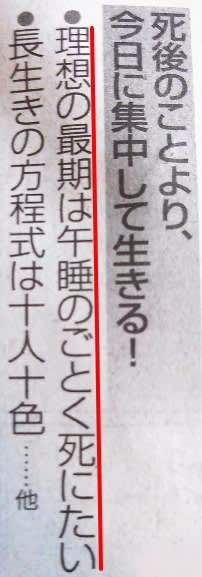 死後のことより、
今日に集中して生きる！
●理想の最期は午睡のごとく死にたい
●長生きの方程式は十人十色……他